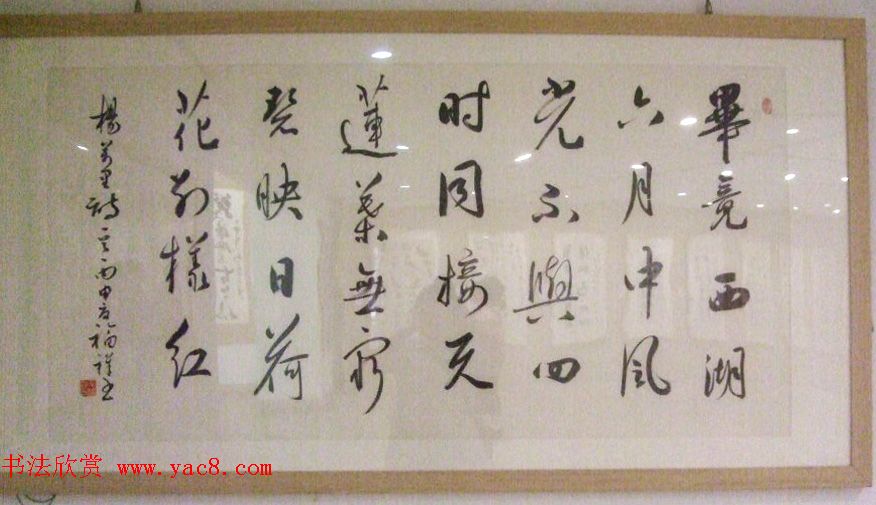 畢竟西湖
六月中風
光不與四
时同接天
蓮葉無窮
碧映日荷
花别樣红
楊萬里詩
福祥书
书法欣赏 www.yac8.com